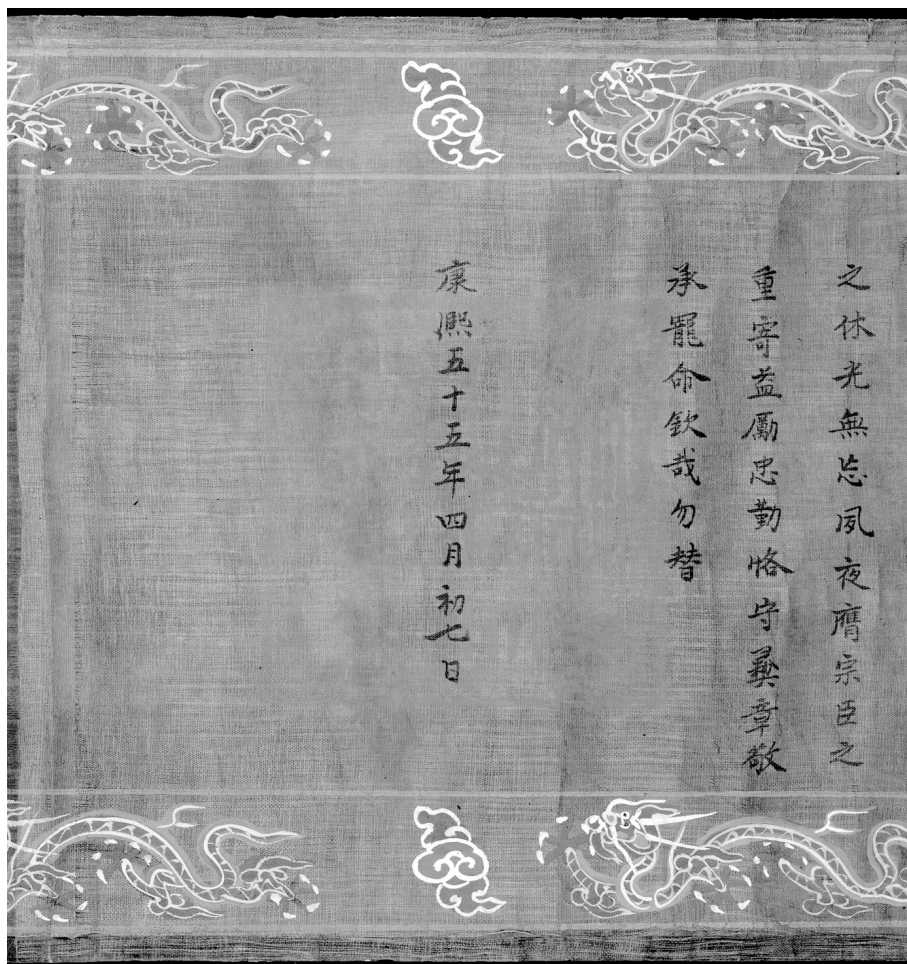 之休光無忘夙夜膺宗臣之
重寄益厲忠勤恪守彝章敬
承寵命欽哉勿替
康熙五十五年四月初七日